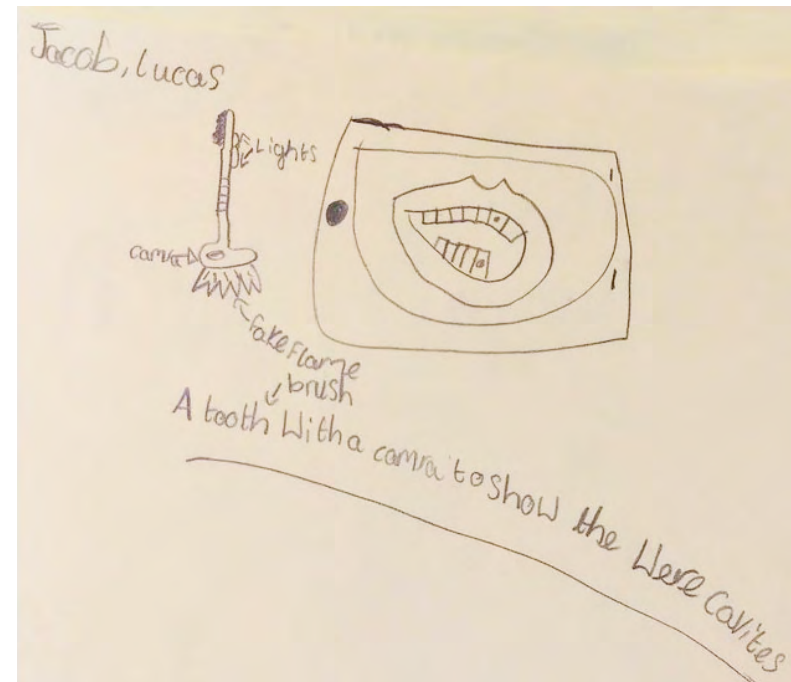 Jacob, Lucas
Lights
camra
fake flame
brush
A tooth With a camra to show the Were cavites